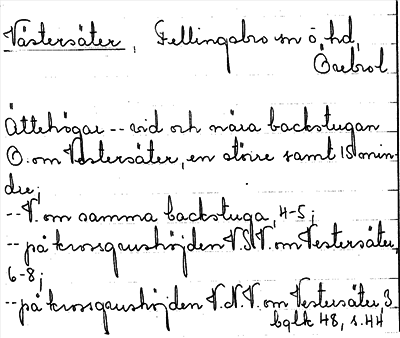 Västersäter, Fellingsbro sn ö. hd,
Örebro l
Ättehögar -- vid och nära backstugan
Ö. om Vestersäter, en större samt 15 min-
dre;
-- V. om samma backstuga, 4-5;
-- på krossgrushöjden V.S.V. om Vestersäter,
6-8;
-- på krossgrushöjden V.N.V. om Vestersäter, 3
bglk 48, s. 44